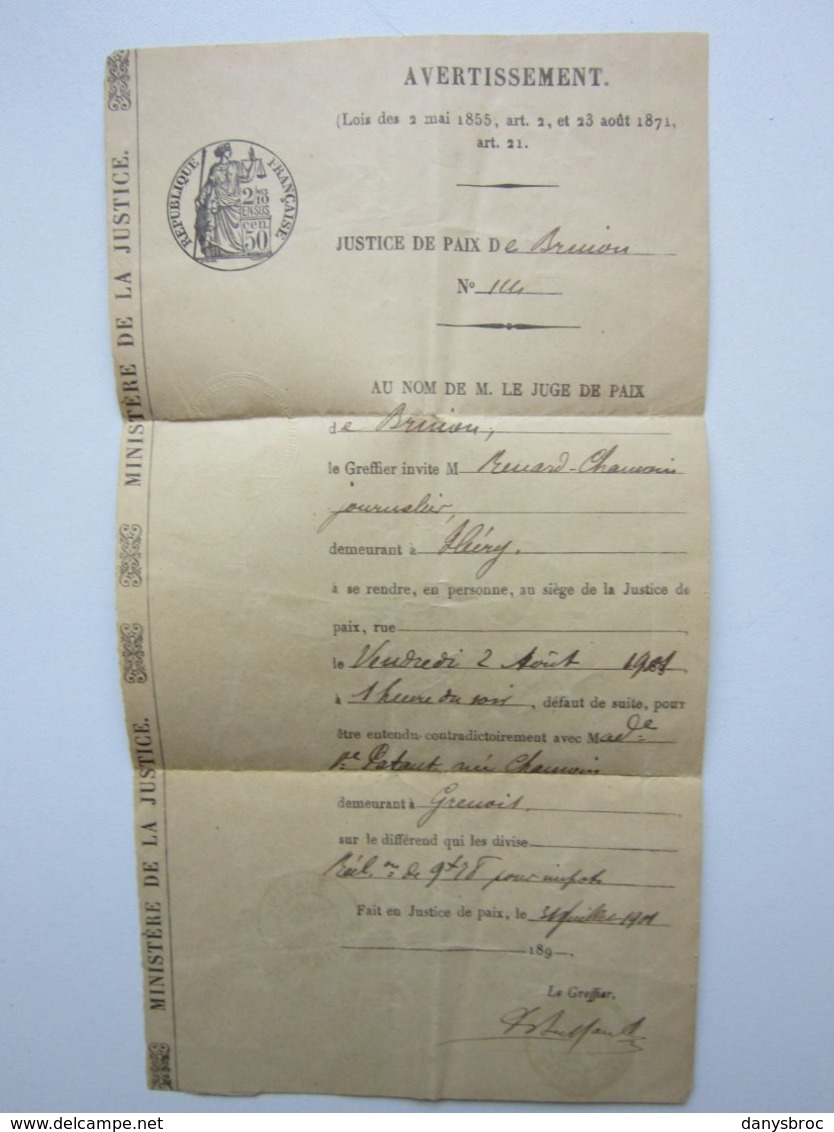 MINISTÈRE DE LA JUSTICE.
MINISTÈRE DE LA JUSTICE.
RÉPUBLIQUE FRANÇAISE
2/10
EN SUS
cen.
50
AVERTISSEMENT.
(Lois des 2 mai 1855, art. 2, et 23 août 1871,
art. 21.
JUSTICE DE PAIX De Brinon
No
AU NOM DE M. LE JUGE DE PAIX
de Brinon,
le Greffier invite M Renard-Chauvin
journalier,
demeurant à Héry,
à se rendre, en personne, au siège de la Justice de
paix, rue
le Vendredi 2 Août 1901
à 1 heure du soir, défaut de suite, pour
être entendu contradictoirement avec Made
Ve née Chauvin
demeurant à Grenois,
sur le différend qui les divise
de pour impots
Fait en Justice de paix, le 31 juillet 1901
189 .
Le Greffier,
delcampe.net
danysbroc